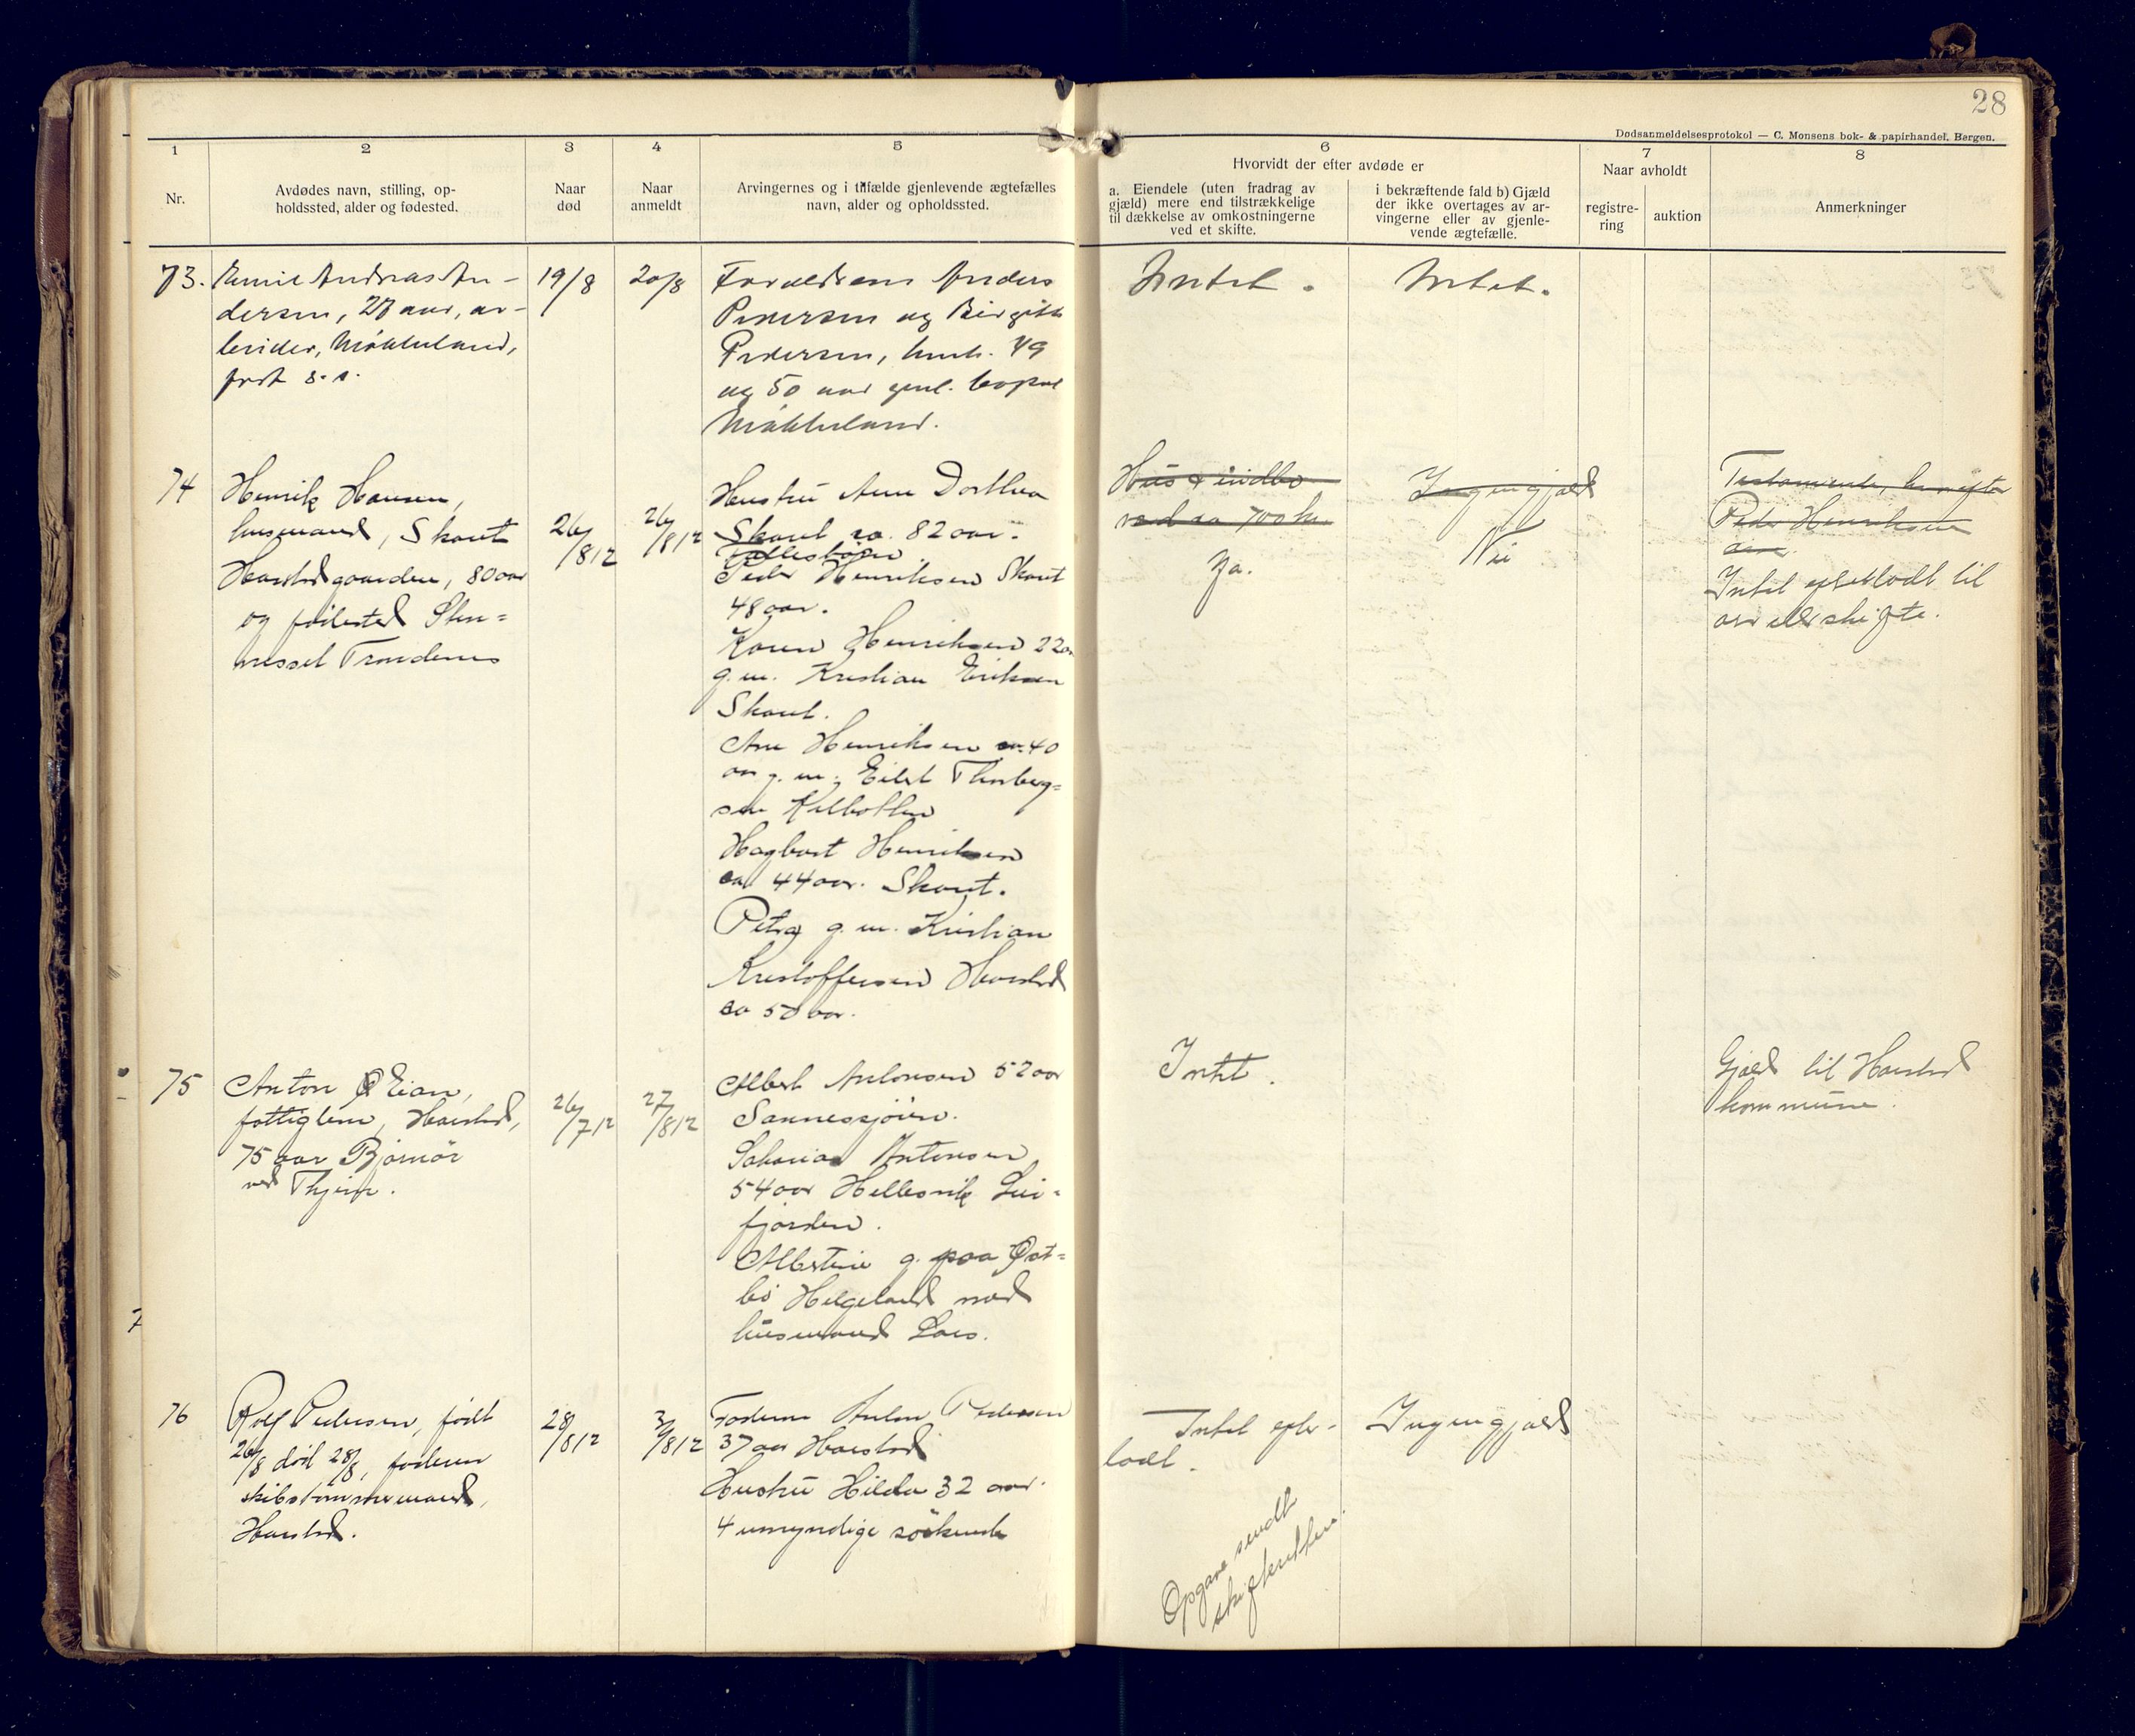 28
Dødsanmeldelsesprotokol — C. Monsens bok- & papirhandel, Bergen.
1
2
3
4
5
6
7
8
Nr.
Avdødes navn, stilling, op-
holdssted, alder og fødested.
Naar
død
Naar
anmeldt
Arvingernes og i tilfælde gjenlevende ægtefælles
navn, alder og opholdssted.
Hvorvidt der efter avdøde er
a. Eiendele (uten fradrag av
gjæld) mere end tilstrækkelige
til dækkelse av omkostningerne
ved et skifte.
i bekræftende fald b) Gjæld
der ikke overtages av ar-
vingerne eller av gjenle-
vende ægtefælle.
Naar avholdt
registre-
ring
auktion
Anmerkninger
73.
Andreas An-
dersen, 27 aar, ar-
beider,
født s. s.
19/8
20/8
Forældrene Anders
Pedersen og Birgith
Pedersen, henh. 49
og 50 aar gml. bopæl
Intet.
Intet.
74
Henrik Hansen,
husmand, Skout
Harstadgaarden, 80 aar
og fødested Sten-
nesset Trondenes
26/8 12
26/8 12
Hustru Ane Dorthea
Skout ca. 82 aar.
Fællesbørn
Peder Henriksen Skout
48 aar.
Karen Henriksen 22 aar
g. m. Kristian Eriksen
Skout.
Ane Henriksen 40
aar g. m. Eilert Thorberg-
sen Kilbotten
Hagbart Henriksen
ca 44 aar. Skout.
Petra g. m. Kristian
Kristoffersen Harstad
ca 50 aar.
Hus & indbo
verd ca 700 kr.
Ja.
Ingen gjæld
Nei
Testamente,
Peder Henriksen
Intet efterladt til
arv eller skifte.
75
Anton Eian,
fattiglem, Harstad,
75 aar Bjørnør
ved Thjem.
26/7 12
27/8 12
Albert Antonsen 52 aar
Sannessjøen.
Antonsen
54 aar Hellesvik Lei-
fjorden.
Albertine g. paa Øst-
bø Helgeland med
husmand Lars.
Intet.
Gjæld til Harstad
kommune.
76
Rolf Pedersen, født
26/8 død 28/8, faderen
skibstømmermand,
Harstad.
28/8 12
3/8 12
Faderen Anton Pedersen
37 aar Harstad
Hustru Hilda 32 aar.
4 umyndige søskende
Intet efter-
ladt.
Ingen gjæld
Opgave sendt
skifteretten.